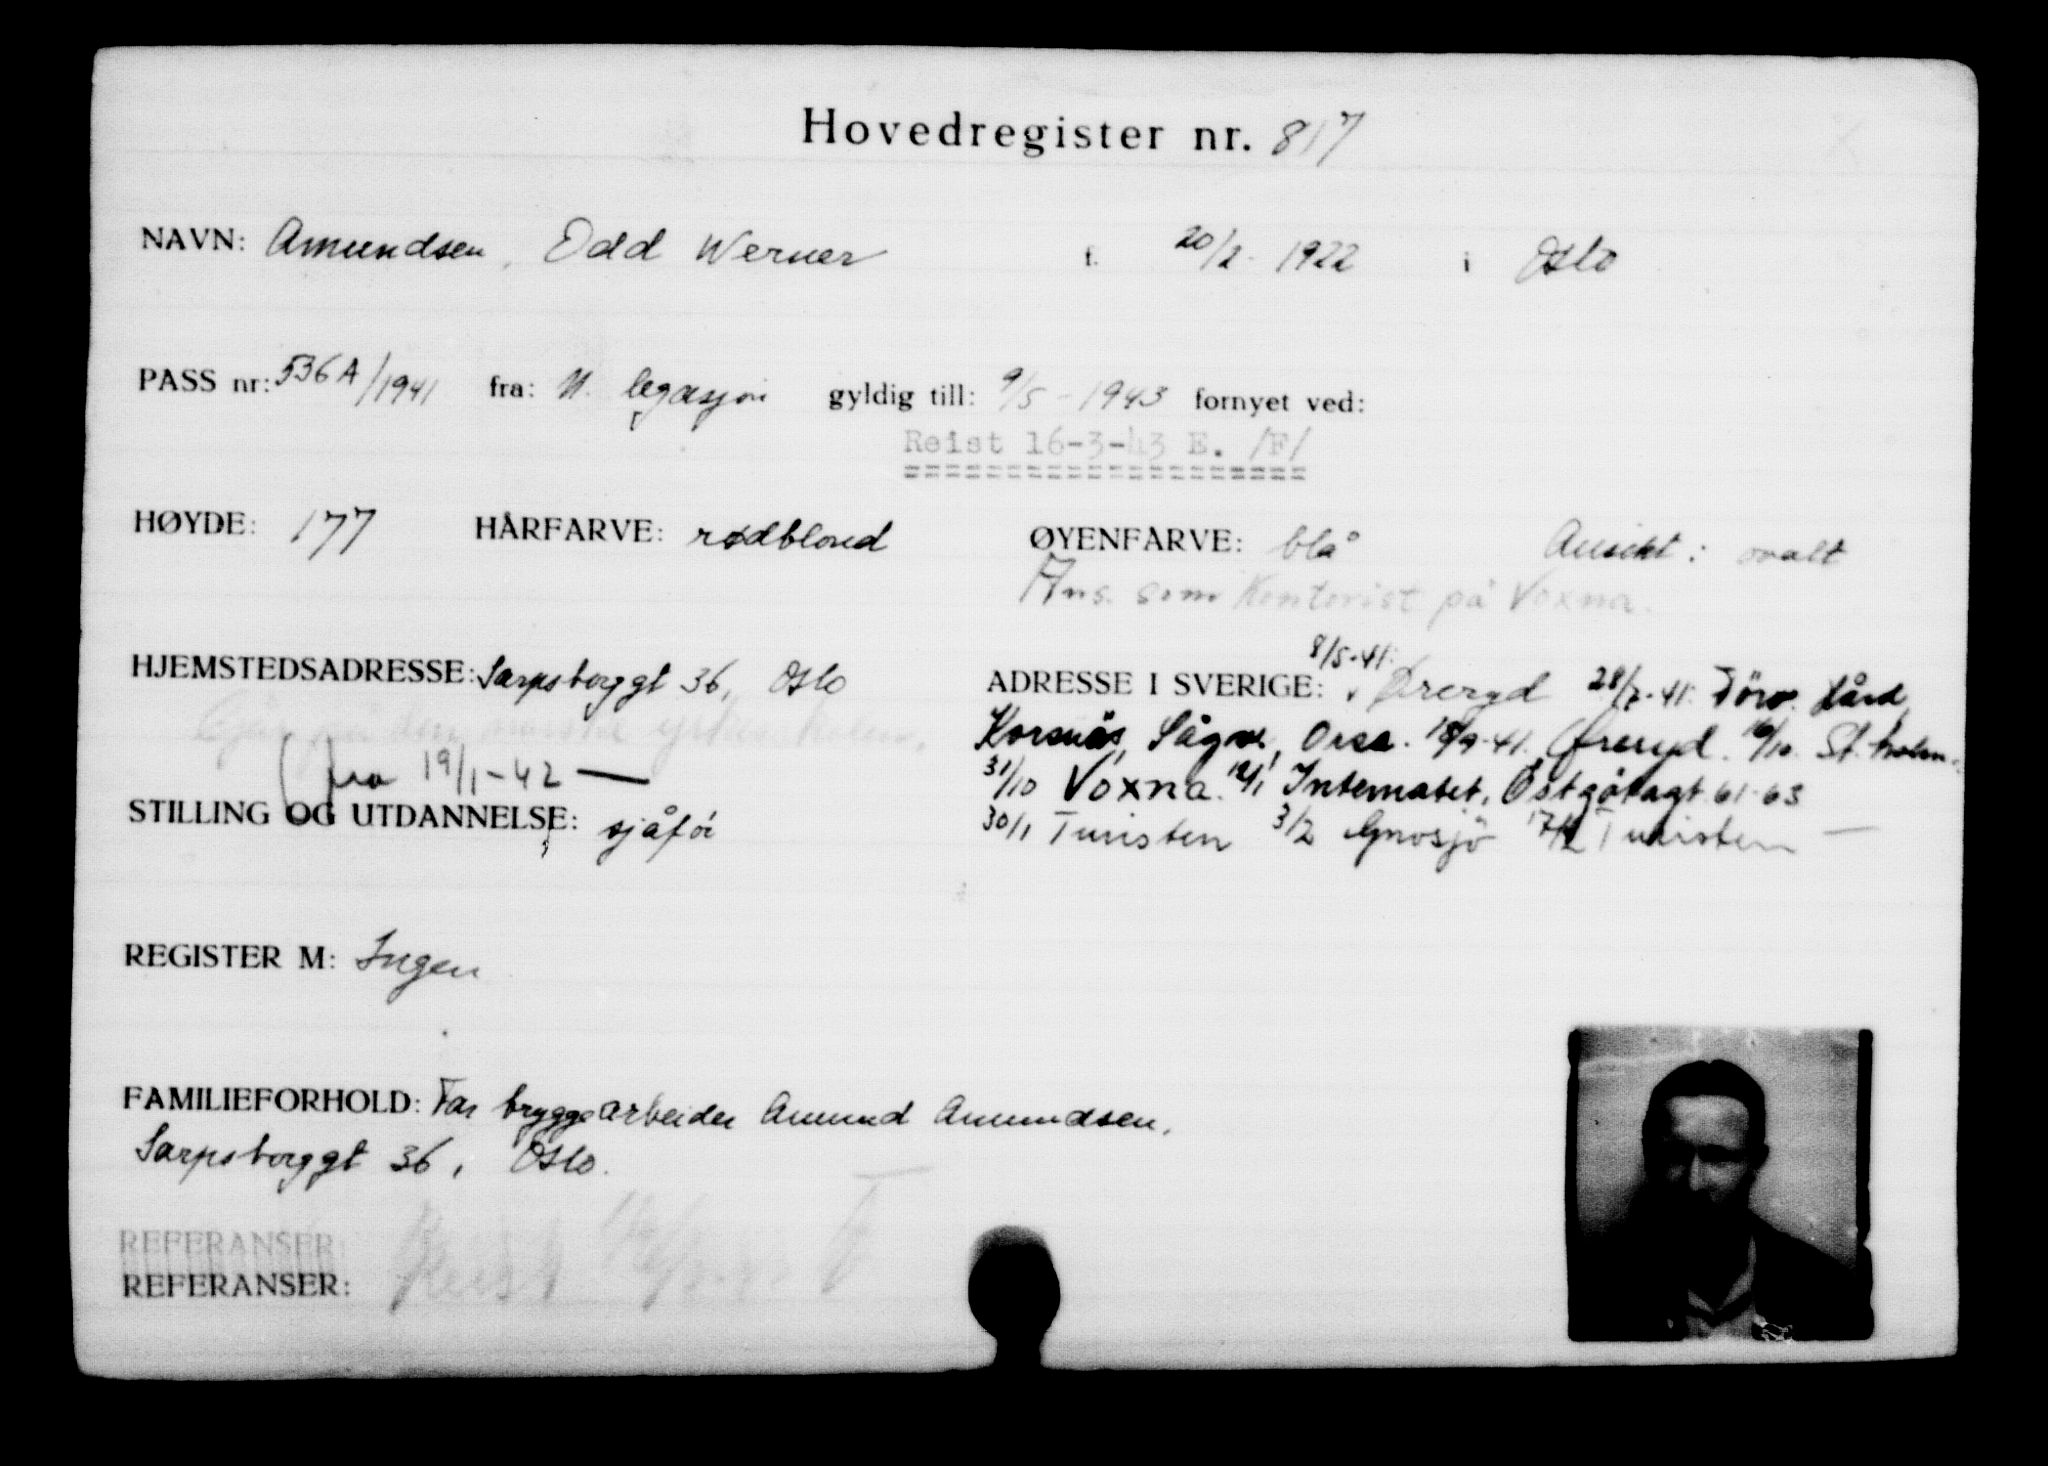 Hovedregister nr. 817
NAVN: Amundsen, Odd Werner f. 20/2- 1922 i Oslo
PASS nr: 536A/1941 fra: N. legasjon gyldig till: 9/5-1943 fornyet ved:
Reist 16-3-43 E. /F/
HØYDE: 177 HÅRFARVE: rødblond ØYENFARVE: blå Ansikt: ovalt
Ans. som Kontorist på Voxna.
HJEMSTEDSADRESSE: Sarpsborggt 36, Oslo ADRESSE I SVERIGE: 8/5-41: Øreryd 28/7-41: Törv. Gård,
Går på den norske yrkesskolen. Korsnäs, Sågv., Orsa. 18/9-41. Øreryd. 16/10. St.holm.
(fra 19/1-42 — 31/10 Voxna. 12/1 Internatet, Östgötagt 61-63
STILLING OG UTDANNELSE: sjåfør 30/1 Turisten 3/2 Gnosjö 17/2 Turisten —
REGISTER M: Ingen
FAMILIEFORHOLD: Far bryggearbeider Amund Amundsen,
Sarpsborggt 36, Oslo.
REFERANSER:
REFERANSER: Reist F